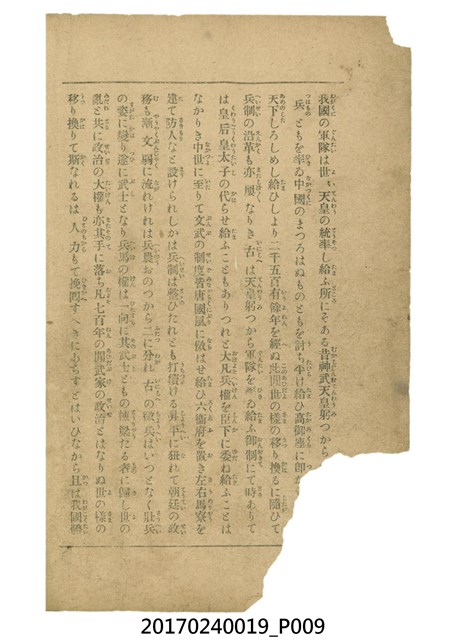 我國の軍隊は世々天皇の統率し給ふ所にそある昔神武天皇躬つから
兵ともを率ゐ中國のまつろはぬものともを討ち平け給ひ高御座に即
天下しろしめし給ひしより二千五百有餘年を經ぬ此間世の樣の移り換るに隨ひて
兵制の沿革も亦屢なりき古は天皇躬つから軍隊を率ゐ給ふ御制にて時ありて
は皇后皇太子の代らせ給ふこともありつれと大凡兵權を臣下に委ね給ふことは
なかりき中世に至りて文武の制度皆唐國風に傚はせ給ひ六衞府を置き左右馬寮を
建て防人なと設けられしかは兵制は整ひたれとも打續ける昇平に狃れて朝廷の政
務も漸文弱に流れけれは兵農おのつから二に分れ古の徵兵はいつとなく壯兵
の姿に變り遂に武士となり兵馬の權は一向に其武士ともの棟梁たる者に歸し世の
亂と共に政治の大權も亦其手に落ち凡七百年の間武家の政治とはなりぬ世の樣の
移り換りて斯なれるは人力もて挽回すへきにあらすとはいひなから且は我國體
20170240019_P009